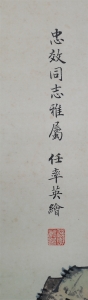 忠效同志雅屬
任率英繪